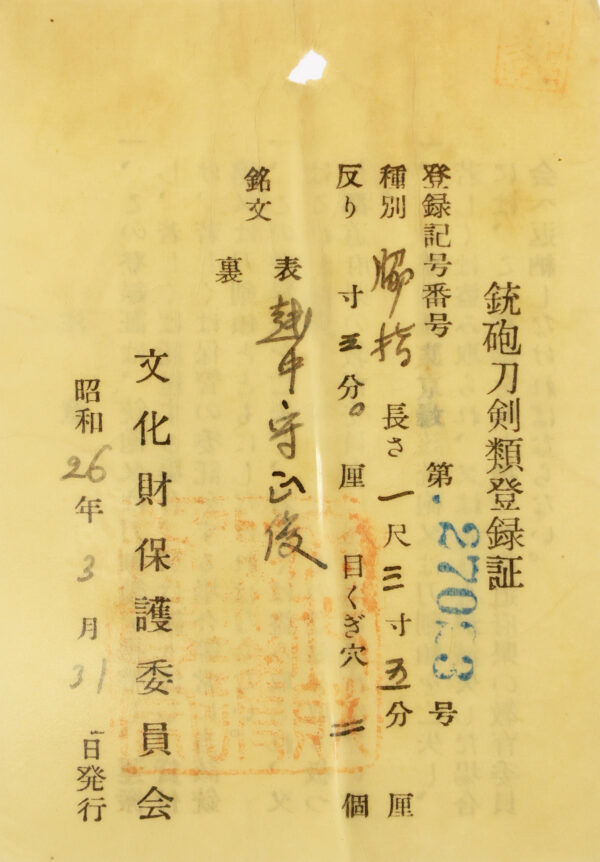 銃砲刀剣類登録証
登録記号番号 第 27053 号
種別 脇指 長さ 一尺三寸五分 厘
反り 寸三分。厘 目くぎ穴 二 個
銘文 表 越中守正俊
裏
文化財保護委員会
昭和26年3月31日発行